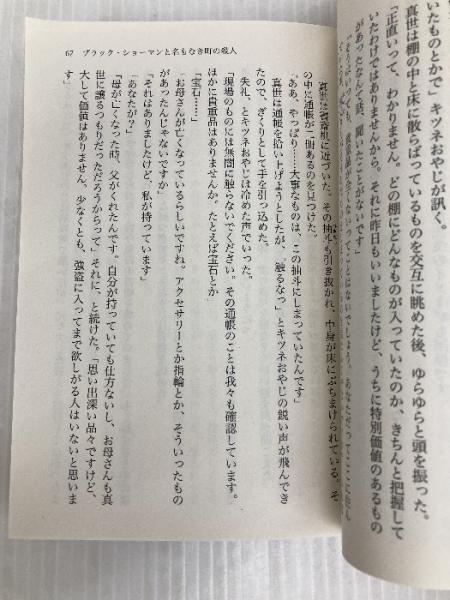 いたものとかで」キツネおやじが訊く。
真世は棚の中と床に散らばっているものを交互に眺めた後、ゆらゆらと頭を振った。
「正直いって、わかりません。どの棚にどんなものが入っていたのか、きちんと把握して
いたわけではありませんから。それに昨日もいいましたけど、うちに特別価値のあるもの
があったなんて話、聞いたことがないです」
67 ブラック・ショーマンと名もなき町の殺人
真世は書斎机に近づいた。その抽斗も引き抜かれ、中身が床にぶちまけられている。そ
の中に通帳が二冊あるのを見つけた。
「ああ、やっぱり……大事なものは、この抽斗にしまっていたんです」
真世は通帳を拾い上げようとしたが、「触るなっ」とキツネおやじの鋭い声が飛んでき
たので、ぎくりとして手を引っ込めた。
失礼、とキツネおやじは冷めた声でいった。
「現場のものには無闇に触らないでください。その通帳のことは我々も確認しています。
ほかに貴重品はありませんか。たとえば宝石とか」
「宝石……」
「お母さんが亡くなっているらしいですね。アクセサリーとか指輪とか、そういったもの
があったんじゃないですか」
「それはありましたけど、私が持っています」
「あなたが？」
「母が亡くなった時、父がくれたんです。自分が持っていても仕方ないし、お母さんも真
世に譲るつもりだっただろうからって」それに、と続けた。「思い出深い品々ですけど、
大して価値はありません。少なくとも、強盗に入ってまで欲しがる人はいないと思いま
す」